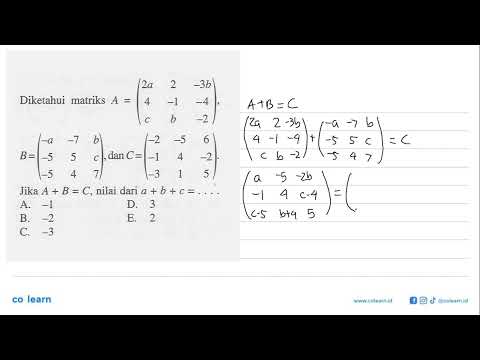 Diketahui matriks A = (2a 2 -3b
4 -1 -4
c b -2),
B = (-a -7 b
-5 5 c
-5 4 7), dan C = (-2 -5 6
-1 4 -2
-3 1 5).
Jika A + B = C, nilai dari a + b + c = . . . .
A. -1 D. 3
B. -2 E. 2
C. -3
A+B = C
(2a 2 -3b
4 -1 -4
c b -2) + (-a -7 b
-5 5 c
-5 4 7) = C
(a -5 -2b
-1 4 c-4
c-5 b+4 5) = (
co learn
www.colearn.id
@colearn.id